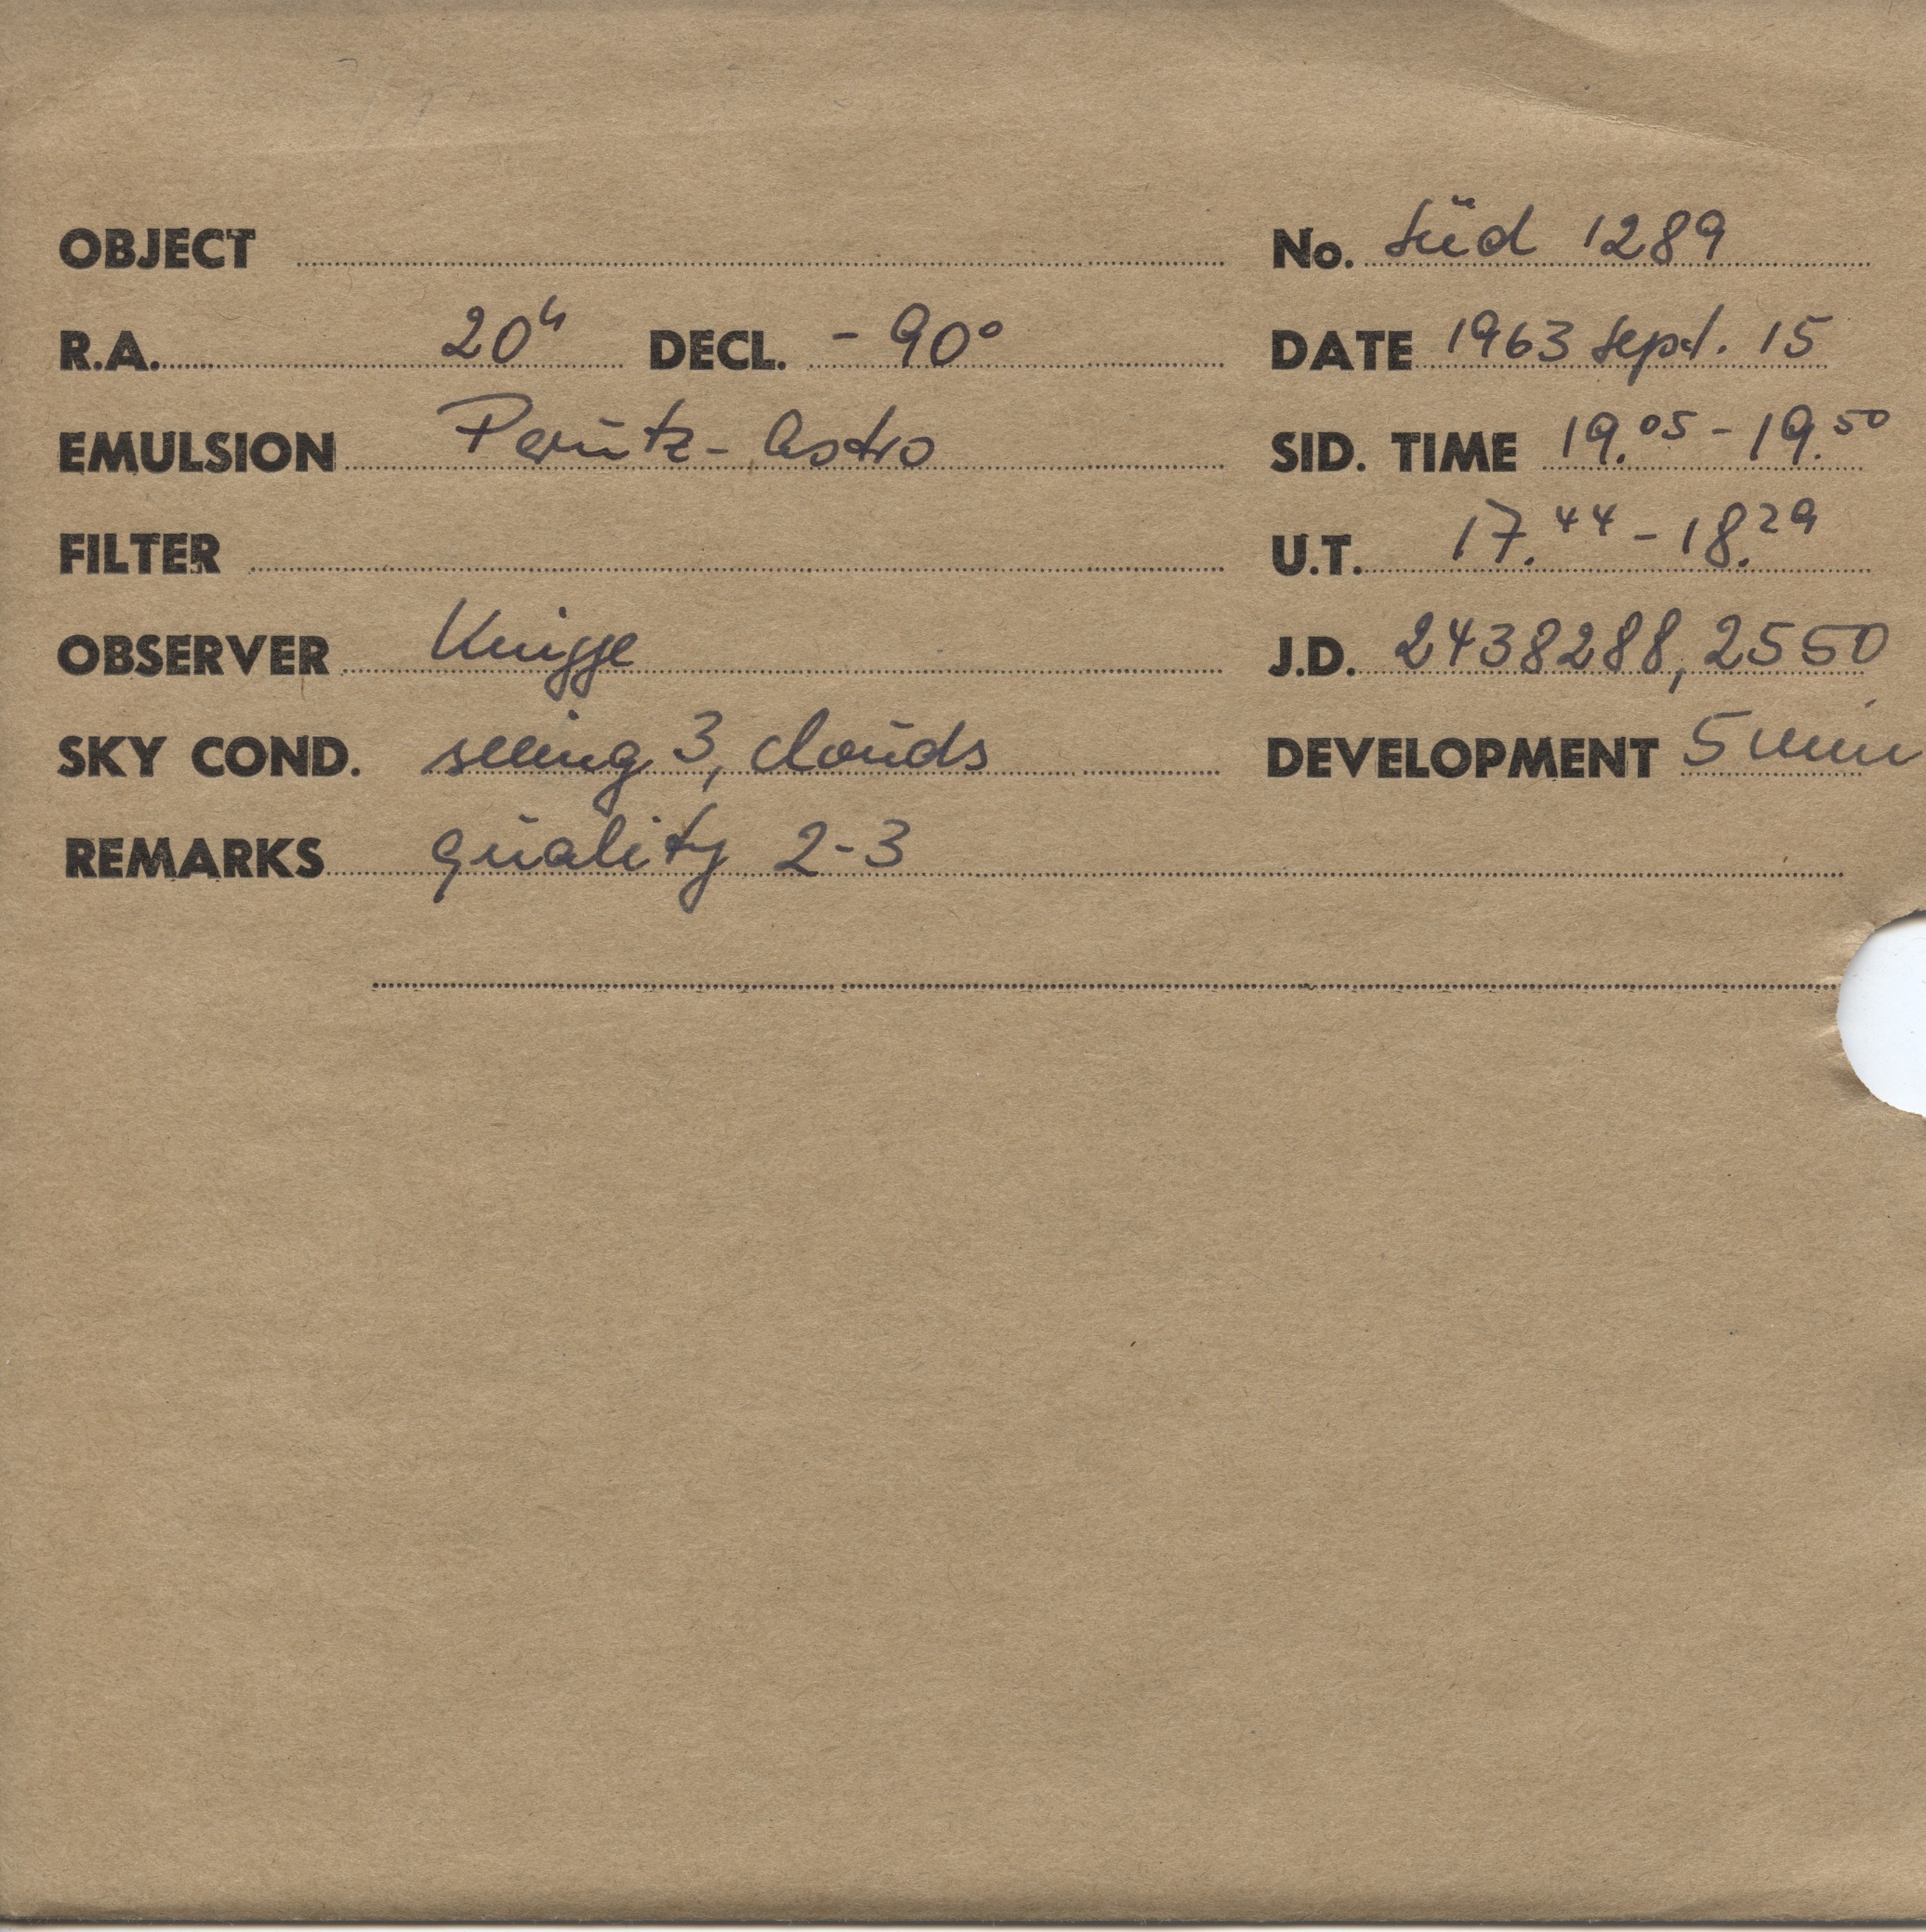 OBJECT No. Süd 1289
R.A. 20h DECL. - 90° DATE 1963 Sept. 15
EMULSION Perutz-Astro SID. TIME 19.05 - 19.50
FILTER U.T. 17.44 - 18.29
OBSERVER Knigge J.D. 2438288,2550
SKY COND. seeing 3, clouds DEVELOPMENT 5 min
REMARKS quality 2-3